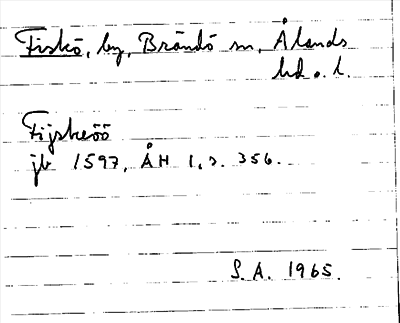 Fiskö, by, Brändö sn, Ålands
hd o. l.
Fijskeöö
jb 1597, ÅH 1, s. 356.
S.A. 1965.